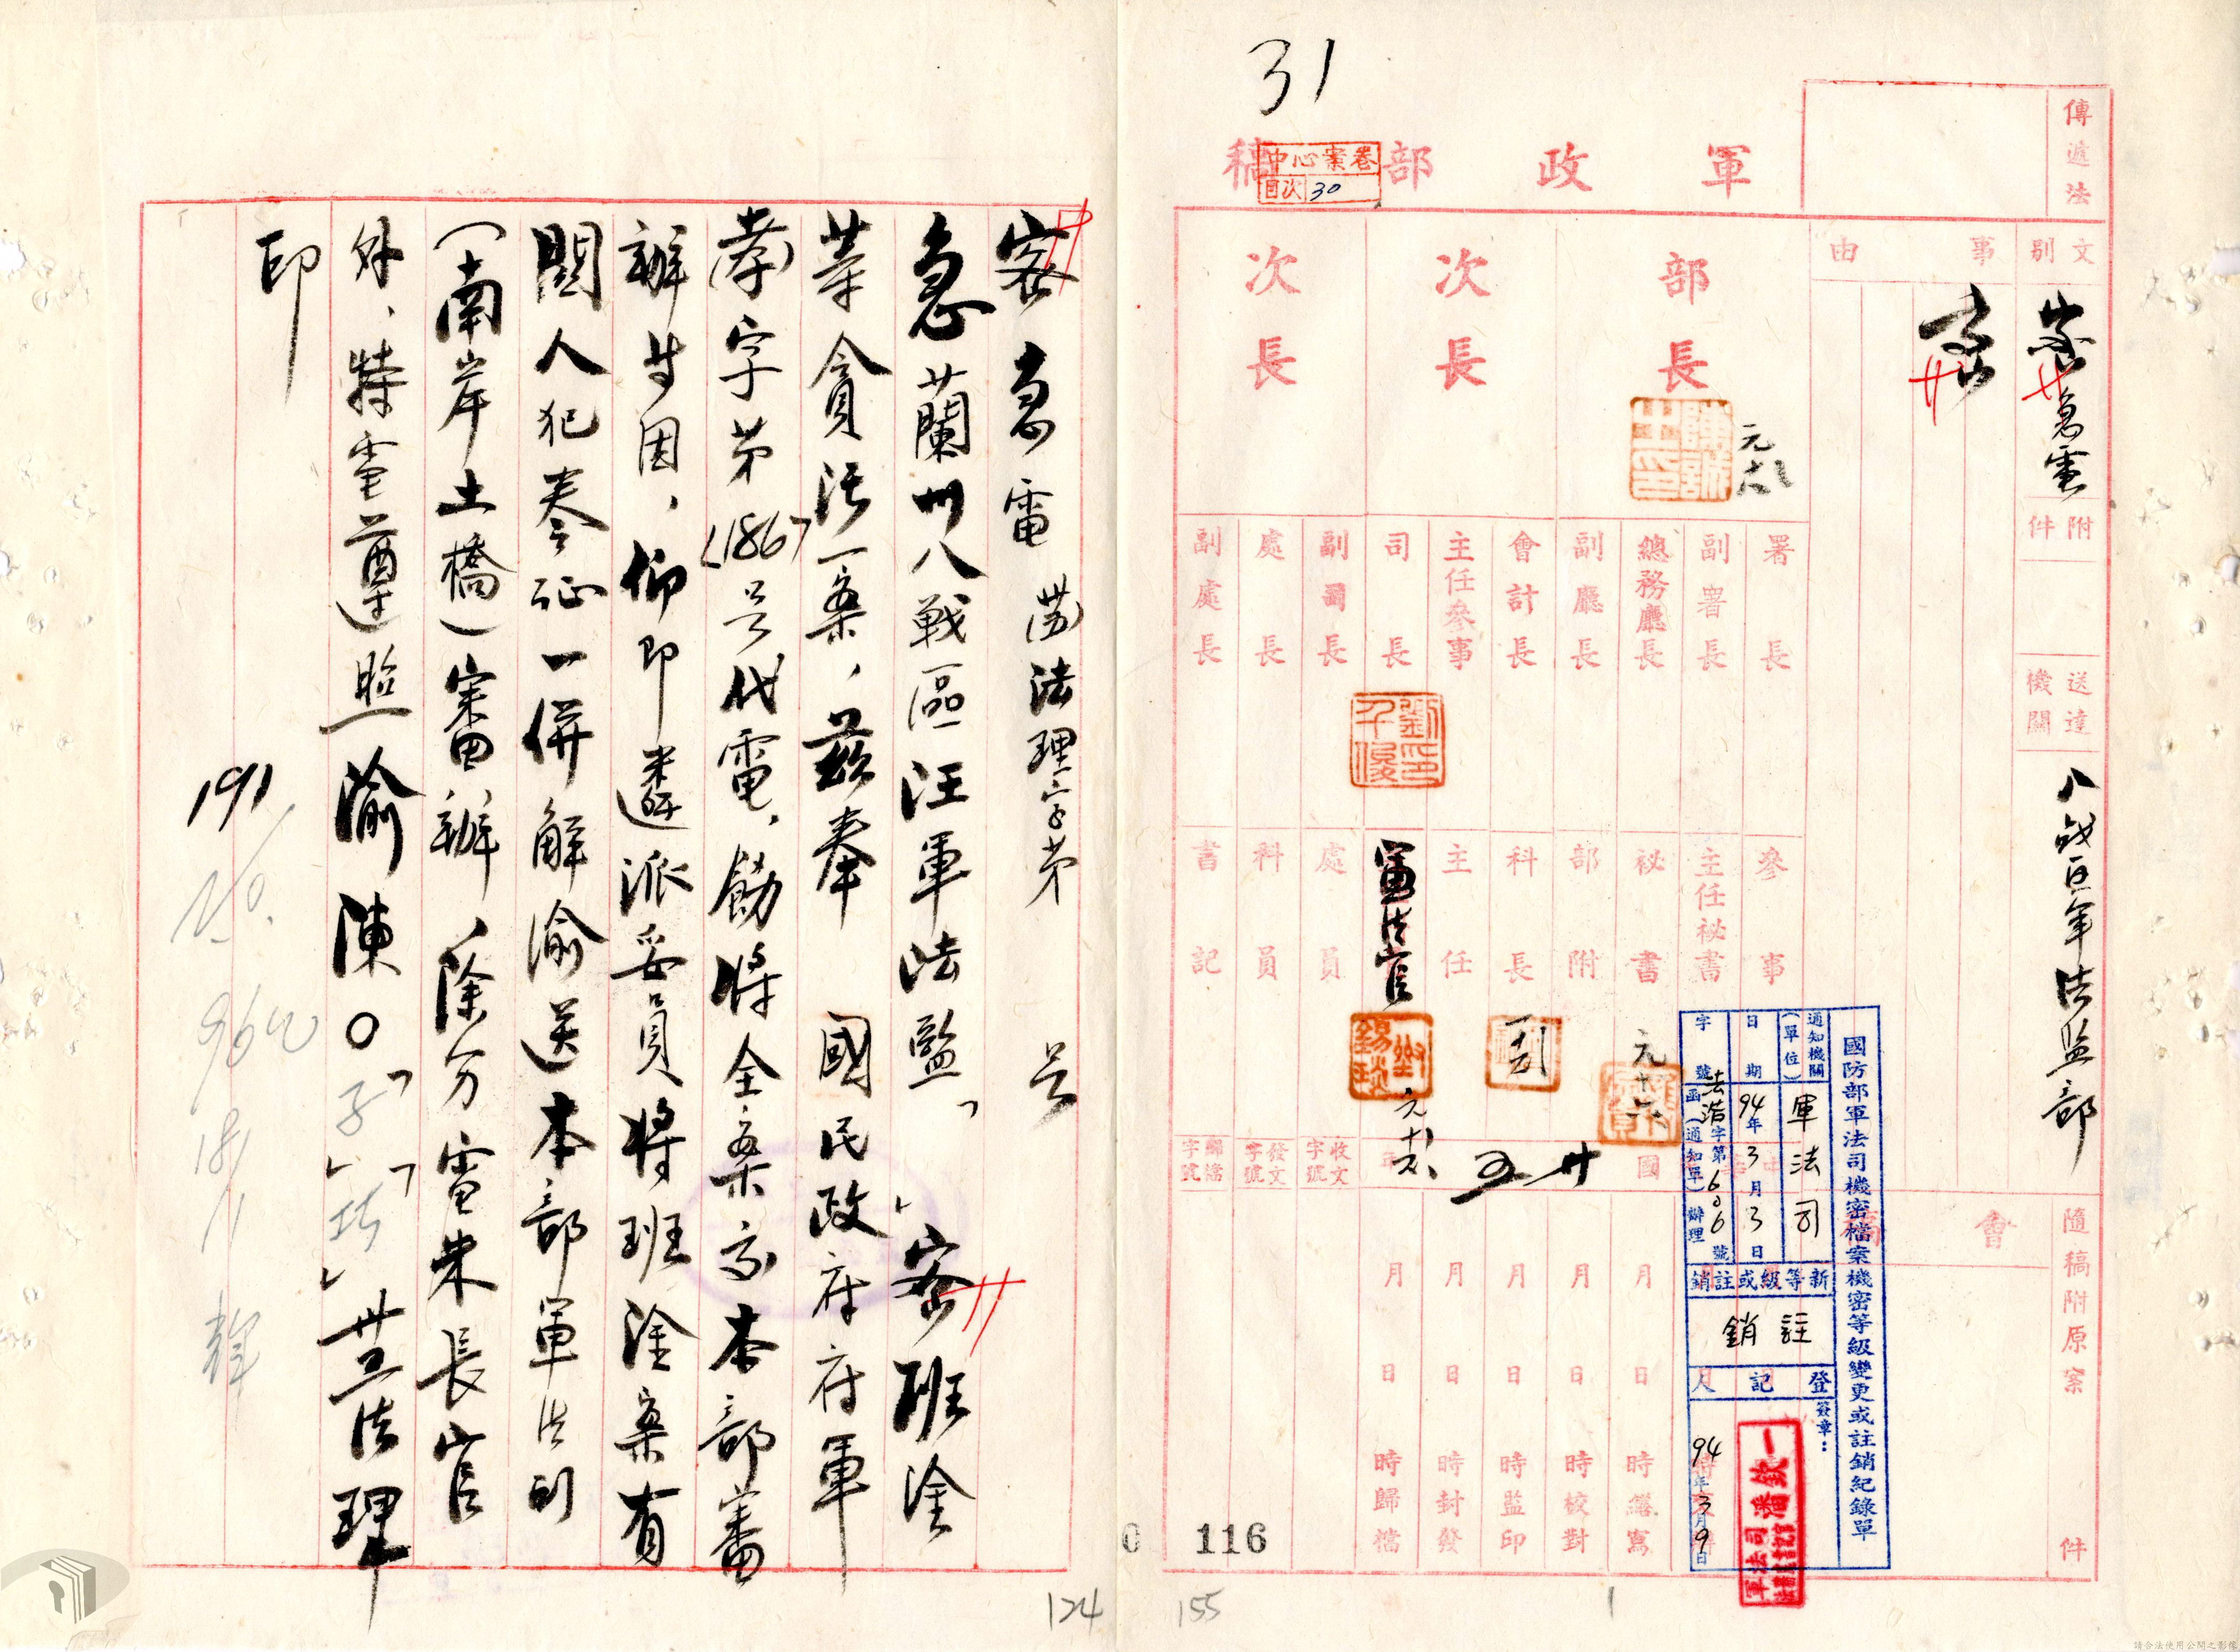 31
軍政部稿
中心案卷
目次 30
傳遞法
文別
密急電
附件
送達機關
八戰區軍法監部
事由
密
部長
次長
次長
陳誠之印
署長
副署長
總務廳長
副廳長
會計長
主任參事
司長
副司長
處長
副處長
劉千俊印
參事
主任祕書
祕書
部附
科長
主任
軍法官
處員
科員
書記
收文字號
發文字號
歸檔字號
隨稿附原案
件
會
月 日 時繕寫
月 日 時校對
月 日 時監印
月 日 時封發
月 日 時歸檔
國防部軍法司機密檔案機密等級變更或註銷紀錄單
通知機關(單位) 軍法司
日期 94年3月3日
字號 法浩字第606號函(通知單)辦理
新等級或註銷
註銷
登記人
簽章:
94年3月9日
116
155
1
密急電 法理字第 號
急蘭州八戰區汪軍法監、密班淦
等貪污一案、茲奉 國民政府府軍
孝字第<186>号代電、飭將全案交本部審
辦等因、仰即遴派妥員將班淦案有
關人犯卷証一併解渝送本部軍法司
(南岸土橋)審辦、除分電朱長官
外、特電遵照渝陳○子 法理
印
191
No.
18/1
124
請合法使用公開之影像